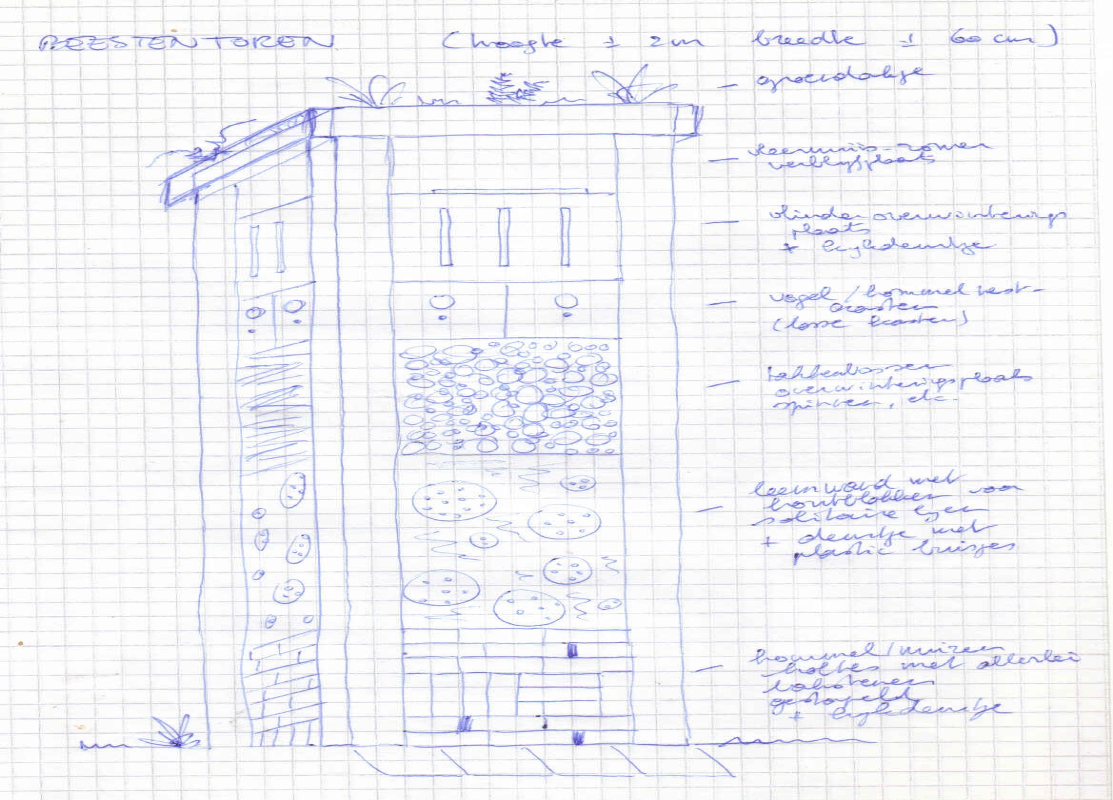 BEESTENTOREN (hoogte ± 2m breedte ± 60 cm)
- groendakje
- vleermuis-zomer
verblijfplaats
- vlinder overwinterings
plaats
+ kijkdeurtje
- vogel / hommel nest-
kasten
(losse kasten)
- takkenbossen
overwinteringsplaats
spinnen, etc.
- leemwand met
houtblokken voor
solitaire bijen
+ deurtje met
plastic buisjes
- hommel/muizen
holtes met allerlei
bakstenen
gestapeld
+ kijkdeurtje